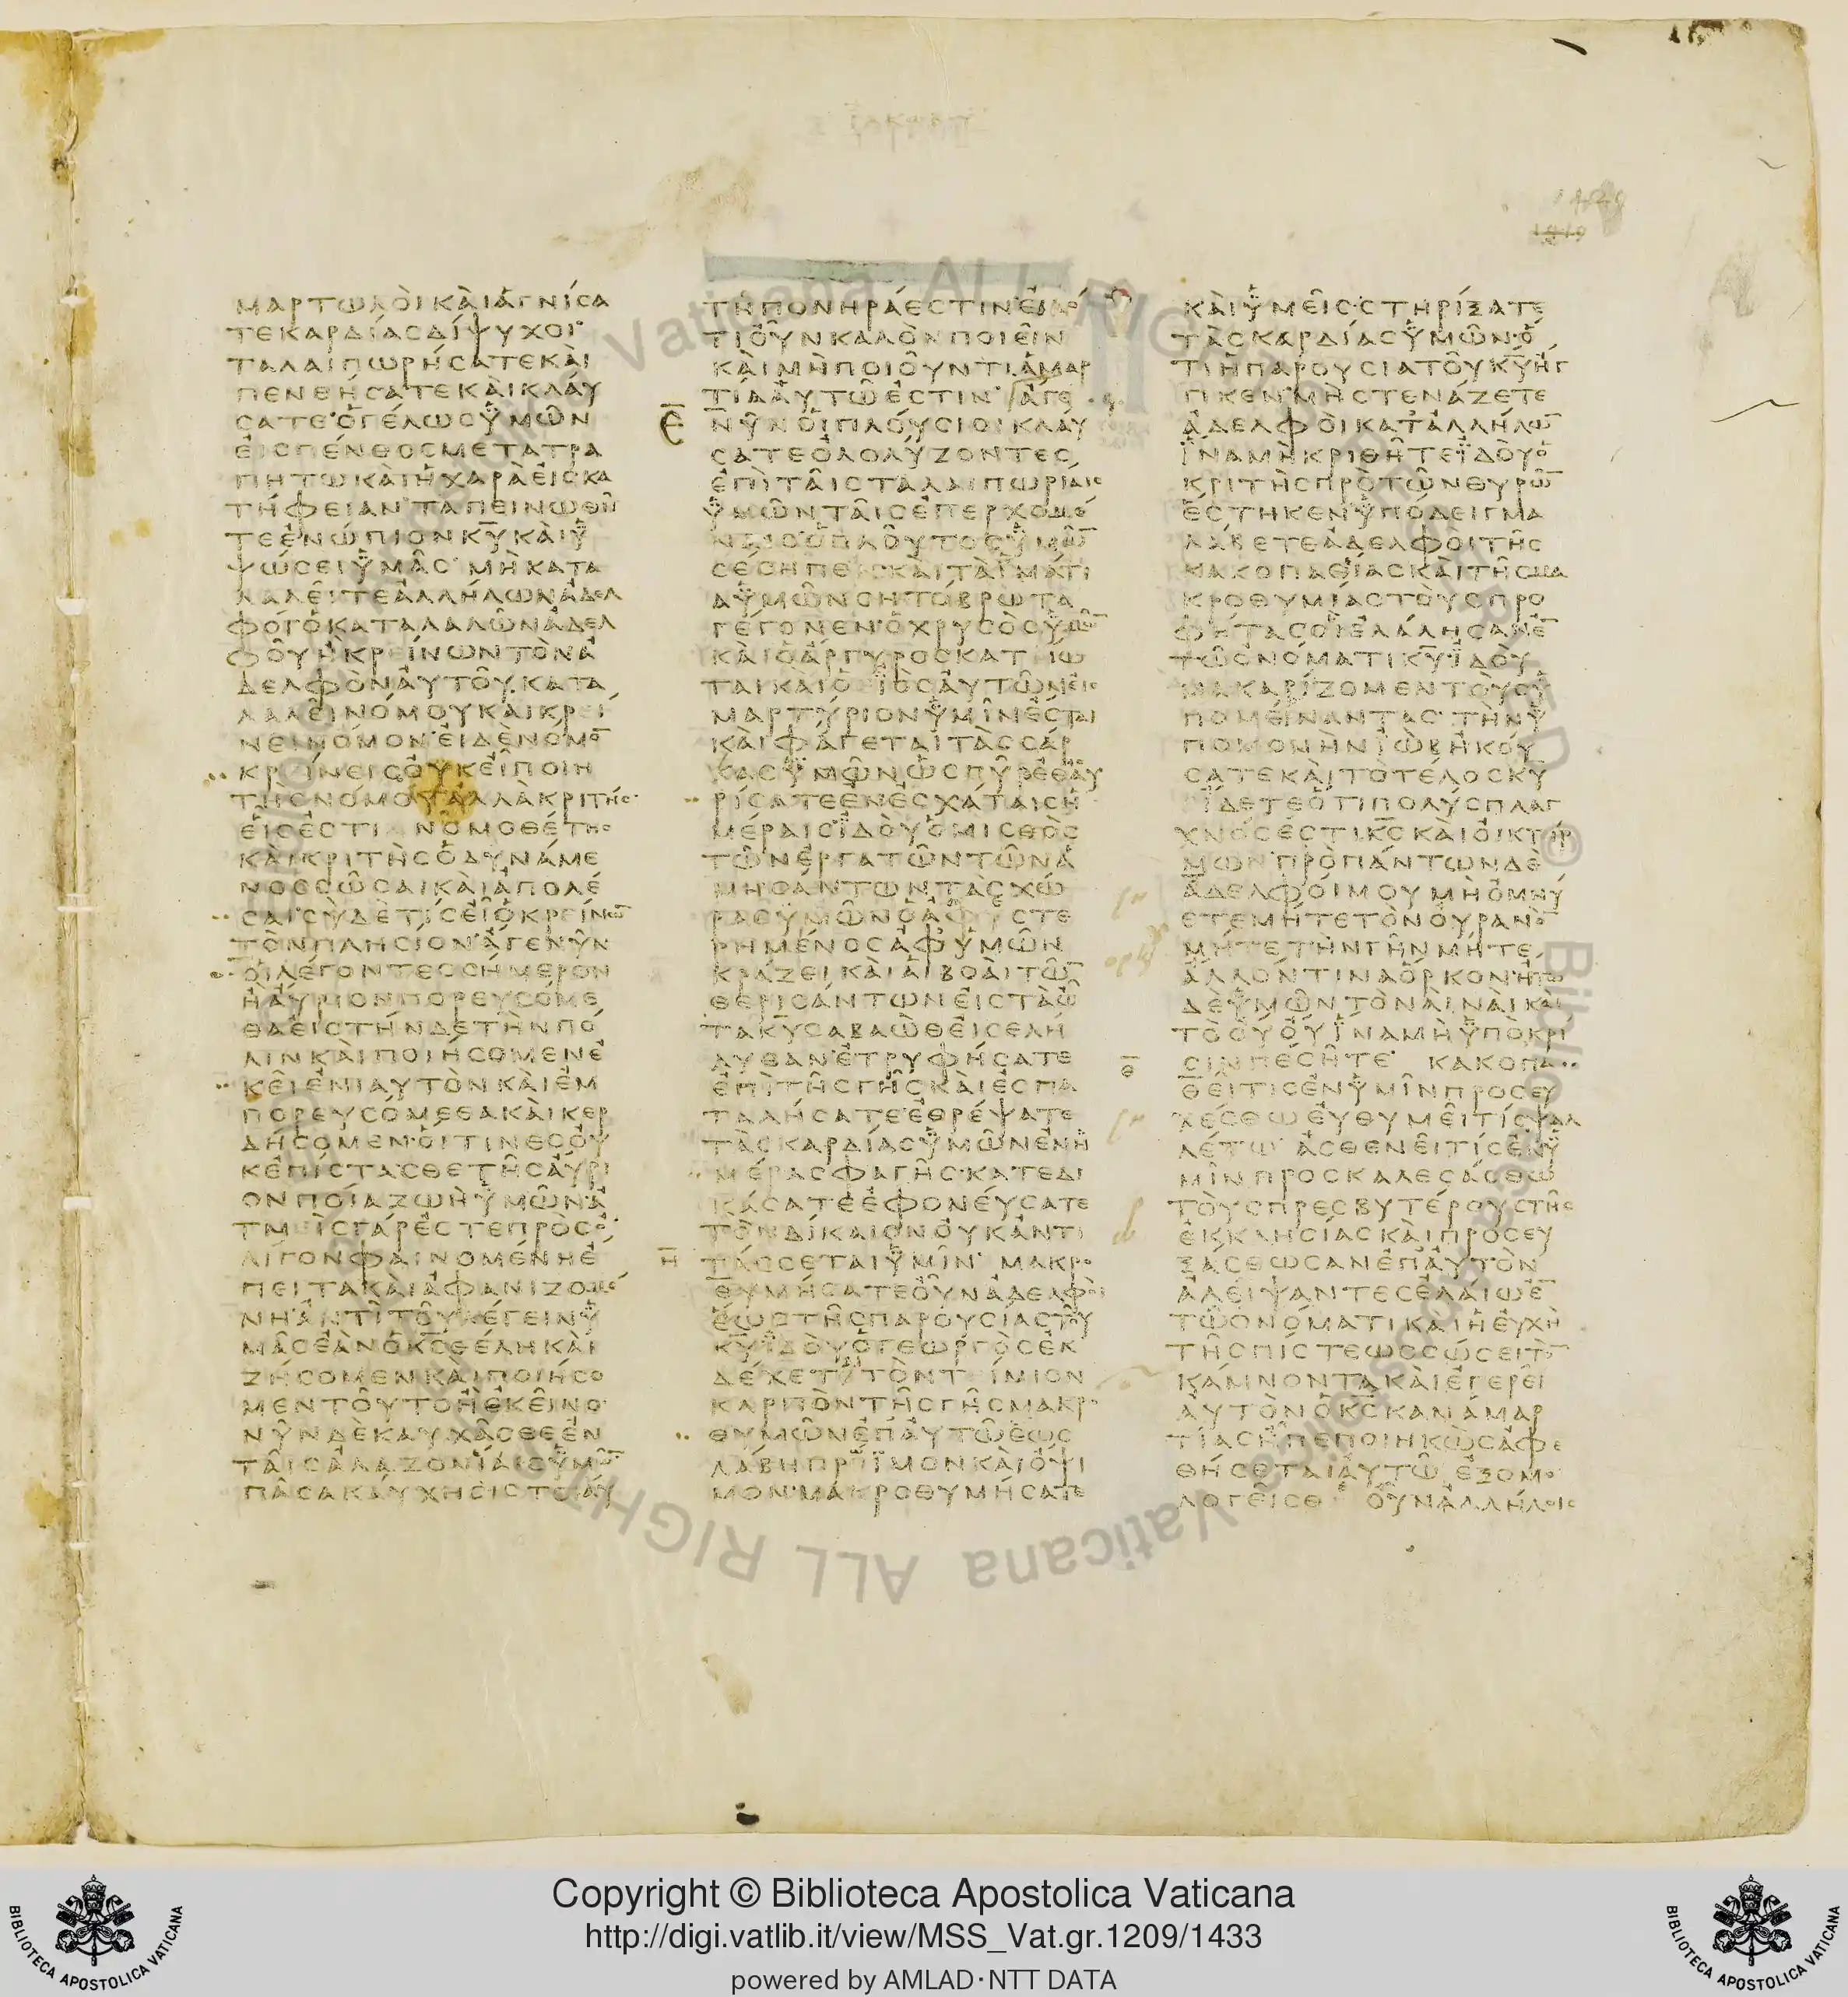 ΙΑΚΩΒΟΥ
ΜΑΡΤΩΛΟΙ ΚΑΙ ΑΓΝΙСΑ
ΤΕ ΚΑΡΔΙΑС ΔΙΨΥΧΟΙ
ΤΑΛΑΙΠΩΡΗСΑΤΕ ΚΑΙ
ΠΕΝΘΗСΑΤΕ ΚΑΙ ΚΛΑΥ
СΑΤΕ Ο ΓΕΛΩС ΥΜΩΝ
ΕΙС ΠΕΝΘΟС ΜΕΤΑΤΡΑ
ΠΗΤΩ ΚΑΙ Η ΧΑΡΑ ΕΙС ΚΑ
ΤΗΦΕΙΑΝ ΤΑΠΕΙΝΩΘΗ
ΤΕ ΕΝΩΠΙΟΝ ΚΥ ΚΑΙ Υ
ΨΩСΕΙ ΥΜΑС ΜΗ ΚΑΤΑ
ΛΑΛΕΙΤΕ ΑΛΛΗΛΩΝ ΑΔΕΛ
ΦΟΙ Ο ΚΑΤΑΛΑΛΩΝ ΑΔΕΛ
ΦΟΥ Η ΚΡΕΙΝΩΝ ΤΟΝ Α
ΔΕΛΦΟΝ ΑΥΤΟΥ ΚΑΤΑ
ΛΑΛΕΙ ΝΟΜΟΥ ΚΑΙ ΚΡΕΙ
ΝΕΙ ΝΟΜΟΝ ΕΙ ΔΕ ΝΟΜΟ
ΚΡΙΝΕΙС ΟΥΚ ΕΙ ΠΟΙΗ
ΤΗС ΝΟΜΟΥ ΑΛΛΑ ΚΡΙΤΗС
ΕΙС ΕСΤΙΝ ΝΟΜΟΘΕΤΗС
ΚΑΙ ΚΡΙΤΗС Ο ΔΥΝΑΜΕ
ΝΟС СΩСΑΙ ΚΑΙ ΑΠΟΛΕ
СΑΙ СΥ ΔΕ ΤΙС ΕΙ Ο ΚΡΕΙΝΩ
ΤΟΝ ΠΛΗСΙΟΝ ΑΓΕ ΝΥΝ
ΟΙ ΛΕΓΟΝΤΕС СΗΜΕΡΟΝ
Η ΑΥΡΙΟΝ ΠΟΡΕΥСΟΜΕ
ΘΑ ΕΙС ΤΗΝΔΕ ΤΗΝ ΠΟ
ΛΙΝ ΚΑΙ ΠΟΙΗСΟΜΕΝ Ε
ΚΕΙ ΕΝΙΑΥΤΟΝ ΚΑΙ ΕΜ
ΠΟΡΕΥСΟΜΕΘΑ ΚΑΙ ΚΕΡ
ΔΗСΟΜΕΝ ΟΙΤΙΝΕС ΟΥ
Κ ΕΠΙСΤΑСΘΕ ΤΗС ΑΥΡΙ
ΟΝ ΠΟΙΑ ΖΩΗ ΥΜΩΝ Α
ΤΜΙС ΓΑΡ ΕСΤΕ ΠΡΟС Ο
ΛΙΓΟΝ ΦΑΙΝΟΜΕΝΗ Ε
ΠΕΙΤΑ ΚΑΙ ΑΦΑΝΙΖΟΜΕ
ΝΗ ΑΝΤΙ ΤΟΥ ΛΕΓΕΙΝ Υ
ΜΑС ΕΑΝ Ο ΚС ΘΕΛΗ ΚΑΙ
ΖΗСΟΜΕΝ ΚΑΙ ΠΟΙΗСΟ
ΜΕΝ ΤΟΥΤΟ Η ΕΚΕΙΝΟ
ΝΥΝ ΔΕ ΚΑΥΧΑСΘΕ ΕΝ
ΤΑΙС ΑΛΑΖΟΝΙΑΙС ΥΜΩ
ΠΑСΑ ΚΑΥΧΗСΙС ΤΟΙΑΥ
ΤΗ ΠΟΝΗΡΑ ΕСΤΙΝ ΕΙΔΟ
ΤΙ ΟΥΝ ΚΑΛΟΝ ΠΟΙΕΙΝ
ΚΑΙ ΜΗ ΠΟΙΟΥΝΤΙ ΑΜΑΡ
ΤΙΑ ΑΥΤΩ ΕСΤΙΝ ΑΓΕ
Ε ΝΥΝ ΟΙ ΠΛΟΥСΙΟΙ ΚΛΑΥ
СΑΤΕ ΟΛΟΛΥΖΟΝΤΕС
ΕΠΙ ΤΑΙС ΤΑΛΑΙΠΩΡΙΑΙС
ΥΜΩΝ ΤΑΙС ΕΠΕΡΧΟΜΕ
ΝΑΙС Ο ΠΛΟΥΤΟС ΥΜΩ
СΕСΗΠΕΝ ΚΑΙ ΤΑ ΙΜΑΤΙ
Α ΥΜΩΝ СΗΤΟΒΡΩΤΑ
ΓΕΓΟΝΕΝ Ο ΧΡΥСΟС ΥΜΩ
ΚΑΙ Ο ΑΡΓΥΡΟС ΚΑΤΙΩ
ΤΑΙ ΚΑΙ Ο ΙΟС ΑΥΤΩΝ ΕΙС
ΜΑΡΤΥΡΙΟΝ ΥΜΙΝ ΕСΤΑΙ
ΚΑΙ ΦΑΓΕΤΑΙ ΤΑС СΑΡ
ΚΑС ΥΜΩΝ ΩС ΠΥΡ ΕΘΗСΑΥ
ΡΙСΑΤΕ ΕΝ ΕСΧΑΤΑΙС Η
ΜΕΡΑΙС ΙΔΟΥ Ο ΜΙСΘΟС
ΤΩΝ ΕΡΓΑΤΩΝ ΤΩΝ Α
ΜΗСΑΝΤΩΝ ΤΑС ΧΩ
ΡΑС ΥΜΩΝ Ο ΑΦΥСΤΕ
ΡΗΜΕΝΟС ΑΦ ΥΜΩΝ
ΚΡΑΖΕΙ ΚΑΙ ΑΙ ΒΟΑΙ ΤΩ
ΘΕΡΙСΑΝΤΩΝ ΕΙС ΤΑ Ω
ΤΑ ΚΥ СΑΒΑΩΘ ΕΙСΕΛΗ
ΛΥΘΑΝ ΕΤΡΥΦΗСΑΤΕ
ΕΠΙ ΤΗС ΓΗС ΚΑΙ ΕСΠΑ
ΤΑΛΗСΑΤΕ ΕΘΡΕΨΑΤΕ
ΤΑС ΚΑΡΔΙΑС ΥΜΩΝ ΕΝ Η
ΜΕΡΑ СΦΑΓΗС ΚΑΤΕΔΙ
ΚΑСΑΤΕ ΕΦΟΝΕΥСΑΤΕ
ΤΟΝ ΔΙΚΑΙΟΝ ΟΥΚ ΑΝΤΙ
Η ΤΑССΕΤΑΙ ΥΜΙΝ ΜΑΚΡΟ
ΘΥΜΗСΑΤΕ ΟΥΝ ΑΔΕΛΦΟΙ
ΕΩС ΤΗС ΠΑΡΟΥСΙΑС ΤΟΥ
ΚΥ ΙΔΟΥ Ο ΓΕΩΡΓΟС ΕΚ
ΔΕΧΕΤΑΙ ΤΟΝ ΤΕΙΜΙΟΝ
ΚΑΡΠΟΝ ΤΗС ΓΗС ΜΑΚΡΟ
ΘΥΜΩΝ ΕΠ ΑΥΤΩ ΕΩС
ΛΑΒΗ ΠΡΟΙΜΟΝ ΚΑΙ ΟΨΙ
ΜΟΝ ΜΑΚΡΟΘΥΜΗСΑΤΕ
ΚΑΙ ΥΜΕΙС СΤΗΡΙΞΑΤΕ
ΤΑС ΚΑΡΔΙΑС ΥΜΩΝ Ο
ΤΙ Η ΠΑΡΟΥСΙΑ ΤΟΥ ΚΥ ΗΓ
ΓΙΚΕΝ ΜΗ СΤΕΝΑΖΕΤΕ
ΑΔΕΛΦΟΙ ΚΑΤ ΑΛΛΗΛΩ
ΙΝΑ ΜΗ ΚΡΙΘΗΤΕ ΙΔΟΥ Ο
ΚΡΙΤΗС ΠΡΟ ΤΩΝ ΘΥΡΩ
ΕСΤΗΚΕΝ ΥΠΟΔΕΙΓΜΑ
ΛΑΒΕΤΕ ΑΔΕΛΦΟΙ ΤΗС
ΚΑΚΟΠΑΘΙΑС ΚΑΙ ΤΗС ΜΑ
ΚΡΟΘΥΜΙΑС ΤΟΥС ΠΡΟ
ΦΗΤΑС ΟΙ ΕΛΑΛΗСΑΝ Ε
ΤΩ ΟΝΟΜΑΤΙ ΚΥ ΙΔΟΥ
ΜΑΚΑΡΙΖΟΜΕΝ ΤΟΥС Υ
ΠΟΜΕΙΝΑΝΤΑС ΤΗΝ Υ
ΠΟΜΟΝΗΝ ΙΩΒ ΗΚΟΥ
СΑΤΕ ΚΑΙ ΤΟ ΤΕΛΟС ΚΥ
ΙΔΕΤΕ ΟΤΙ ΠΟΛΥСΠΛΑΓ
ΧΝΟС ΕСΤΙ ΚС ΚΑΙ ΟΙΚΤΙΡ
ΜΩΝ ΠΡΟ ΠΑΝΤΩΝ ΔΕ
ΑΔΕΛΦΟΙ ΜΟΥ ΜΗ ΟΜΝΥ
ΕΤΕ ΜΗΤΕ ΤΟΝ ΟΥΡΑΝΟ
ΜΗΤΕ ΤΗΝ ΓΗΝ ΜΗΤΕ
ΑΛΛΟΝ ΤΙΝΑ ΟΡΚΟΝ ΗΤΩ
ΔΕ ΥΜΩΝ ΤΟ ΝΑΙ ΝΑΙ ΚΑΙ
ΤΟ ΟΥ ΟΥ ΙΝΑ ΜΗ ΥΠΟ ΚΡΙ
Θ СΙΝ ΠΕСΗΤΕ ΚΑΚΟΠΑ
ΘΕΙ ΤΙС ΕΝ ΥΜΙΝ ΠΡΟСΕΥ
ΧΕСΘΩ ΕΥΘΥΜΕΙ ΤΙС ΨΑΛ
ΛΕΤΩ ΑСΘΕΝΕΙ ΤΙС ΕΝ Υ
ΜΙΝ ΠΡΟСΚΑΛΕСΑСΘΩ
ΤΟΥС ΠΡΕСΒΥΤΕΡΟΥС ΤΗС
ΕΚΚΛΗСΙΑС ΚΑΙ ΠΡΟСΕΥ
ΞΑСΘΩСΑΝ ΕΠ ΑΥΤΟΝ
ΑΛΕΙΨΑΝΤΕС ΕΛΑΙΩ Ε
ΤΩ ΟΝΟΜΑΤΙ ΚΑΙ Η ΕΥΧΗ
ΤΗС ΠΙСΤΕΩС СΩСΕΙ ΤΟ
ΚΑΜΝΟΝΤΑ ΚΑΙ ΕΓΕΡΕΙ
ΑΥΤΟΝ Ο ΚС ΚΑΝ ΑΜΑΡ
ΤΙΑС Η ΠΕΠΟΙΗΚΩС ΑΦΕ
ΘΗСΕΤΑΙ ΑΥΤΩ ΕΞΟΜΟ
ΛΟΓΕΙСΘΕ ΟΥΝ ΑΛΛΗΛΟΙС
Vaticana ALL RIGHTS
Copyright © Biblioteca Apostolica Vaticana
http://digi.vatlib.it/view/MSS_Vat.gr.1209/1433
powered by AMLAD·NTT DATA
BIBLIOTECA APOSTOLICA VATICANA
BIBLIOTECA APOSTOLICA VATICANA